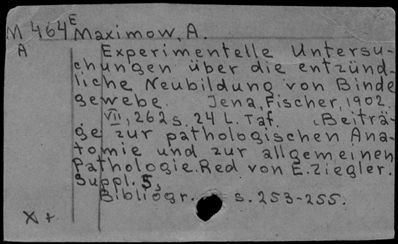 M 464E Maximow, A.
A Experimentelle Untersu-
chungen über die entzünd-
liche Neubildung von Binde
gewebe. Jena, Fischer, 1902.
VII, 262 s. 24 L. Taf. (Beiträ-
ge zur pathologischen Ana-
tomie und zur allgemeinen
Pathologie. Red von E. Ziegler.
Suppl. 5,
Bibliogr. s. 253-255.
X +